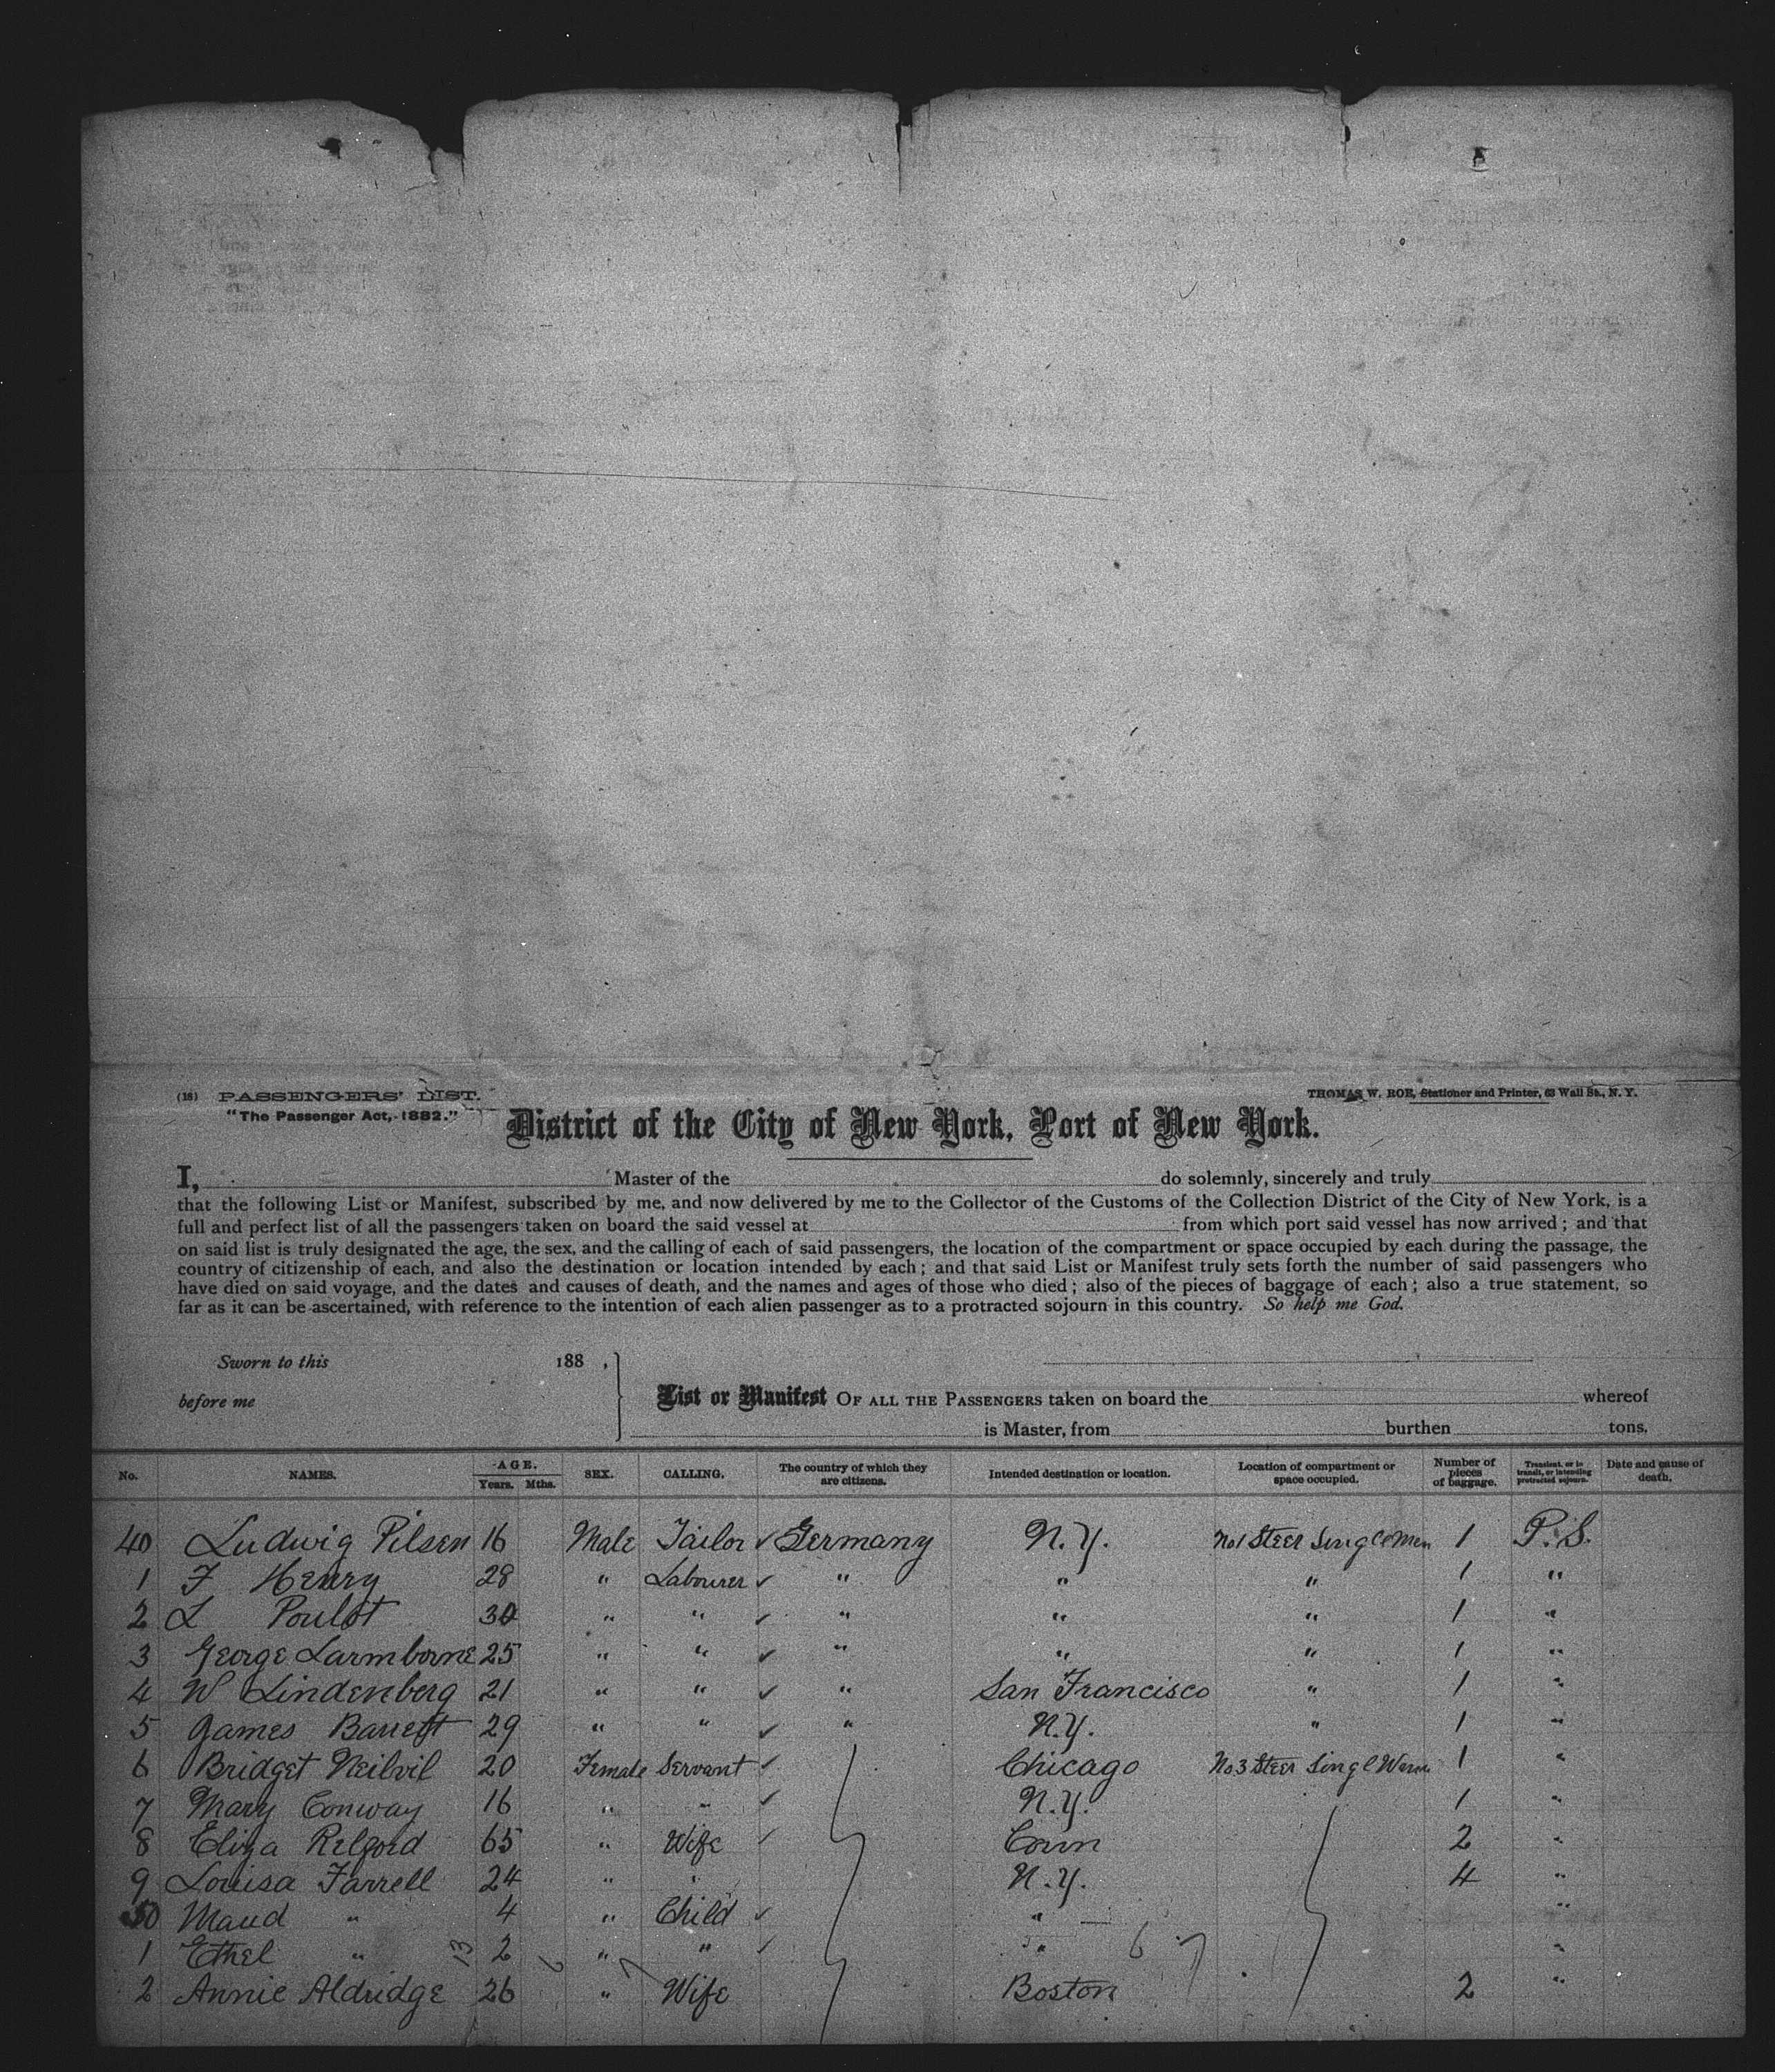 (18) PASSENGERS' LIST.
THOMAS W. ROE, Stationer and Printer, 63 Wall St., N. Y.
"The Passenger Act, 1882."
District of the City of New York, Port of New York.
I, Master of the do solemnly, sincerely and truly
that the following List or Manifest, subscribed by me, and now delivered by me to the Collector of the Customs of the Collection District of the City of New York, is a
full and perfect list of all the passengers taken on board the said vessel at from which port said vessel has now arrived; and that
on said list is truly designated the age, the sex, and the calling of each of said passengers, the location of the compartment or space occupied by each during the passage, the
country of citizenship of each, and also the destination or location intended by each; and that said List or Manifest truly sets forth the number of said passengers who
have died on said voyage, and the dates and causes of death, and the names and ages of those who died; also of the pieces of baggage of each; also a true statement, so
far as it can be ascertained, with reference to the intention of each alien passenger as to a protracted sojourn in this country. So help me God.
Sworn to this 188 ,
before me
List or Manifest OF ALL THE PASSENGERS taken on board the whereof
is Master, from burthen tons.
No. NAMES. AGE. Years. Mths. SEX. CALLING. The country of which they are citizens. Intended destination or location. Location of compartment or space occupied. Number of pieces of baggage. Transient, or in transit, or intending protracted sojourn. Date and cause of death.
40 Ludwig Pilsen 16 Male Tailor ✓ Germany N.Y. No1 Steer Single Men 1 P.S.
1 F Henry 28 " Labourer ✓ " " " 1 "
2 L Poulot 30 " " ✓ " " " 1 "
3 George Larmborne 25 " " ✓ " " " 1 "
4 W Lindenberg 21 " " ✓ " San Francisco " 1 "
5 James Barrett 29 " " ✓ " N.Y. " 1 "
6 Bridget Neilvil 20 Female Servant ✓ Chicago No3 Steer Singl 1 "
7 Mary Conway 16 " " ✓ N.Y. 1 "
8 Eliza Relford 65 " Wife ✓ Conn 2 "
9 Louisa Farrell 24 " " N.Y. 4 "
50 Maud " 4 " Child ✓ " "
1 Ethel " 2 " " ✓ " "
2 Annie Aldridge 26 " Wife Boston 2 "